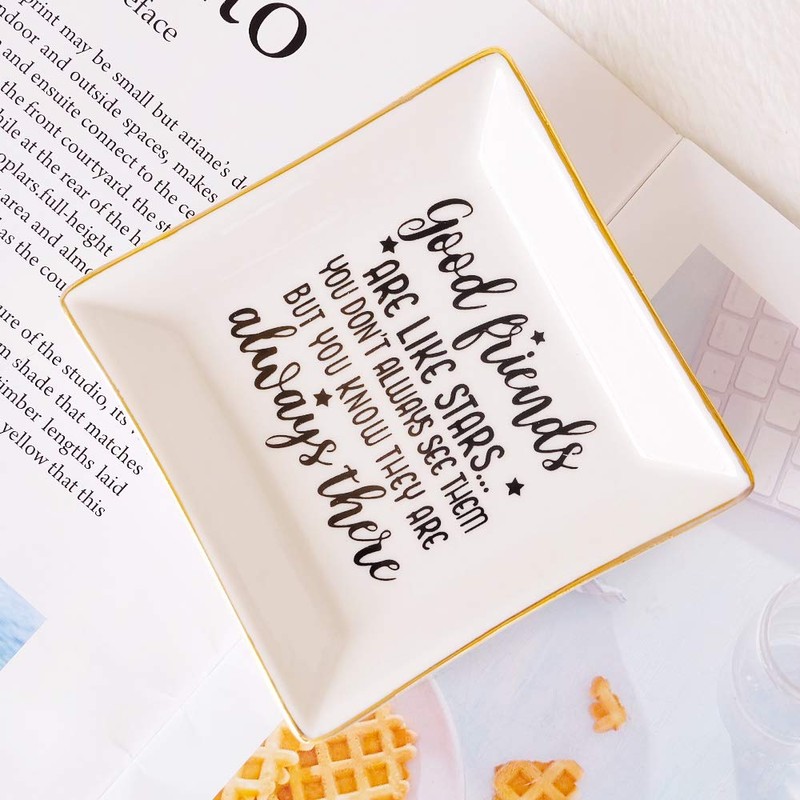 Good friends
ARE LIKE STARS...
YOU DON'T ALWAYS SEE THEM
BUT YOU KNOW THEY ARE
always there
print may be small but ariane's
ndoor and outside spaces, makes
and ensuite connect to the
the front courtyard. the
while at the rear of the
oplars.full-height
area and
as the
ure of the studio, its
m shade that matches
timber lengths laid
yellow that this